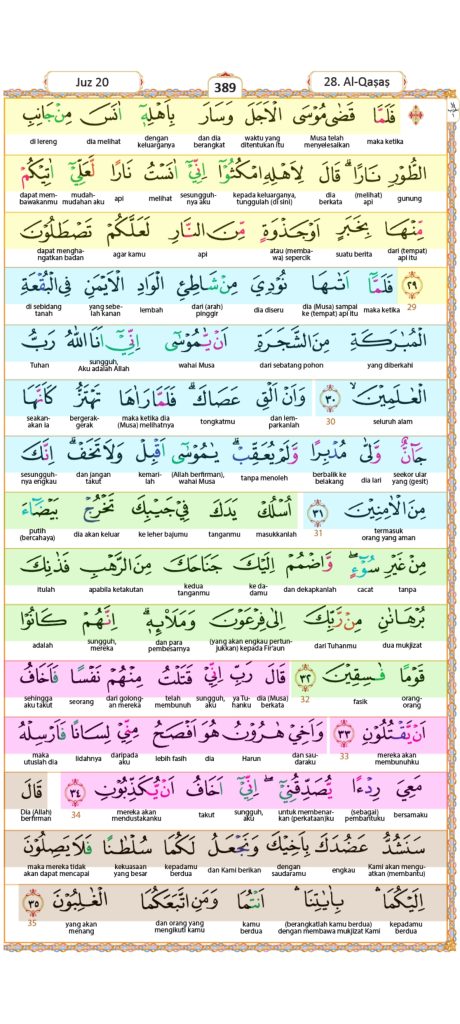 Juz 20
389
28. Al-Qaṣaṣ
فَلَمَّا قَضٰى مُوْسَى الْاَجَلَ وَسَارَ بِاَهْلِهٖٓ اٰنَسَ مِنْ جَانِبِ
maka ketika Musa telah menyelesaikan waktu yang ditentukan itu dan dia berangkat dengan keluarganya dia melihat di lereng
الطُّوْرِ نَارًاۗ قَالَ لِاَهْلِهِ امْكُثُوْٓا اِنِّيْٓ اٰنَسْتُ نَارًا لَّعَلِّيْٓ اٰتِيْكُمْ
gunung (melihat) api dia berkata kepada keluarganya, tunggulah (di sini) sesungguh-nya aku melihat api mudah-mudahan aku dapat mem-bawakanmu
مِّنْهَا بِخَبَرٍ اَوْ جَذْوَةٍ مِّنَ النَّارِ لَعَلَّكُمْ تَصْطَلُوْنَ
dari (tempat) api itu suatu berita atau (memba-wa) sepercik api agar kamu dapat mengha-ngatkan badan
٢٩ فَلَمَّآ اَتٰىهَا نُوْدِيَ مِنْ شَاطِئِ الْوَادِ الْاَيْمَنِ فِى الْبُقْعَةِ
29 maka ketika dia (Musa) sampai ke (tempat) api itu dia diseru dari (arah) pinggir lembah yang sebe-lah kanan di sebidang tanah
الْمُبٰرَكَةِ مِنَ الشَّجَرَةِ اَنْ يّٰمُوْسٰٓى اِنِّيْٓ اَنَا اللّٰهُ رَبُّ
yang diberkahi dari sebatang pohon wahai Musa sungguh, Aku adalah Allah Tuhan
الْعٰلَمِيْنَۙ ٣٠ وَاَنْ اَلْقِ عَصَاكَۗ فَلَمَّا رَاٰهَا تَهْتَزُّ كَاَنَّهَا
seluruh alam 30 dan lem-parkanlah tongkatmu maka ketika dia (Musa) melihatnya bergerak-gerak seakan-akan ia
جَاۤنٌّ وَّلّٰى مُدْبِرًا وَّلَمْ يُعَقِّبْۗ يٰمُوْسٰٓى اَقْبِلْ وَلَا تَخَفْۗ اِنَّكَ
seekor ular yang (gesit) dia lari berbalik ke belakang tanpa menoleh (Allah berfirman), wahai Musa kemari-lah dan jangan takut sesungguh-nya engkau
مِنَ الْاٰمِنِيْنَ ٣١ اُسْلُكْ يَدَكَ فِيْ جَيْبِكَ تَخْرُجْ بَيْضَاۤءَ
termasuk orang yang aman 31 masukkanlah tanganmu ke leher bajumu dia akan keluar putih (bercahaya)
مِنْ غَيْرِ سُوْۤءٍ وَّاضْمُمْ اِلَيْكَ جَنَاحَكَ مِنَ الرَّهْبِ فَذٰنِكَ
tanpa cacat dan dekapkanlah ke da-damu kedua tanganmu apabila ketakutan itulah
بُرْهَانٰنِ مِنْ رَّبِّكَ اِلٰى فِرْعَوْنَ وَمَلَا۟ىِٕهٖۗ اِنَّهُمْ كَانُوْا
dua mukjizat dari Tuhanmu (yang akan engkau pertun-jukkan) kepada Fir'aun dan para pembesarnya sungguh, mereka adalah
قَوْمًا فٰسِقِيْنَ ٣٢ قَالَ رَبِّ اِنِّيْ قَتَلْتُ مِنْهُمْ نَفْسًا فَاَخَافُ
orang-orang fasik 32 dia (Musa) berkata ya Tu-hanku sungguh, aku telah membunuh dari golong-an mereka seorang sehingga aku takut
اَنْ يَّقْتُلُوْنِ ٣٣ وَاَخِيْ هٰرُوْنُ هُوَ اَفْصَحُ مِنِّيْ لِسَانًا فَاَرْسِلْهُ
mereka akan membunuhku 33 dan sau-daraku Harun dia lebih fasih daripada aku lidahnya maka utuslah dia
مَعِيَ رِدْءًا يُّصَدِّقُنِيْٓ اِنِّيْٓ اَخَافُ اَنْ يُّكَذِّبُوْنِ ٣٤ قَالَ
bersamaku (sebagai) pembantuku untuk membenar-kan (perkataan)ku sungguh, aku takut mereka akan mendustakanku 34 Dia (Allah) berfirman
سَنَشُدُّ عَضُدَكَ بِاَخِيْكَ وَنَجْعَلُ لَكُمَا سُلْطٰنًا فَلَا يَصِلُوْنَ
Kami akan mengu-atkan (membantu) engkau dengan saudaramu dan Kami berikan kepadamu berdua kekuasaan yang besar maka mereka tidak akan dapat mencapai
اِلَيْكُمَا بِاٰيٰتِنَا اَنْتُمَا وَمَنِ اتَّبَعَكُمَا الْغٰلِبُوْنَ ٣٥
kepadamu berdua (berangkatlah kamu berdua) dengan membawa mukjizat Kami kamu berdua dan orang yang mengikuti kamu yang akan menang 35